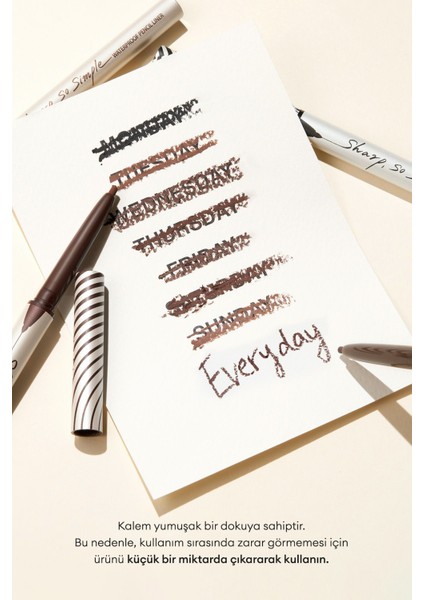 So Simple WATERPROOF PENCIL LINER
Sharp, So
MONDAY
TUESDAY
WEDNESDAY
THURSDAY
FRIDAY
SATURDAY
SUNDAY
Everyday
Kalem yumuşak bir dokuya sahiptir.
Bu nedenle, kullanım sırasında zarar görmemesi için
ürünü küçük bir miktarda çıkararak kullanın.